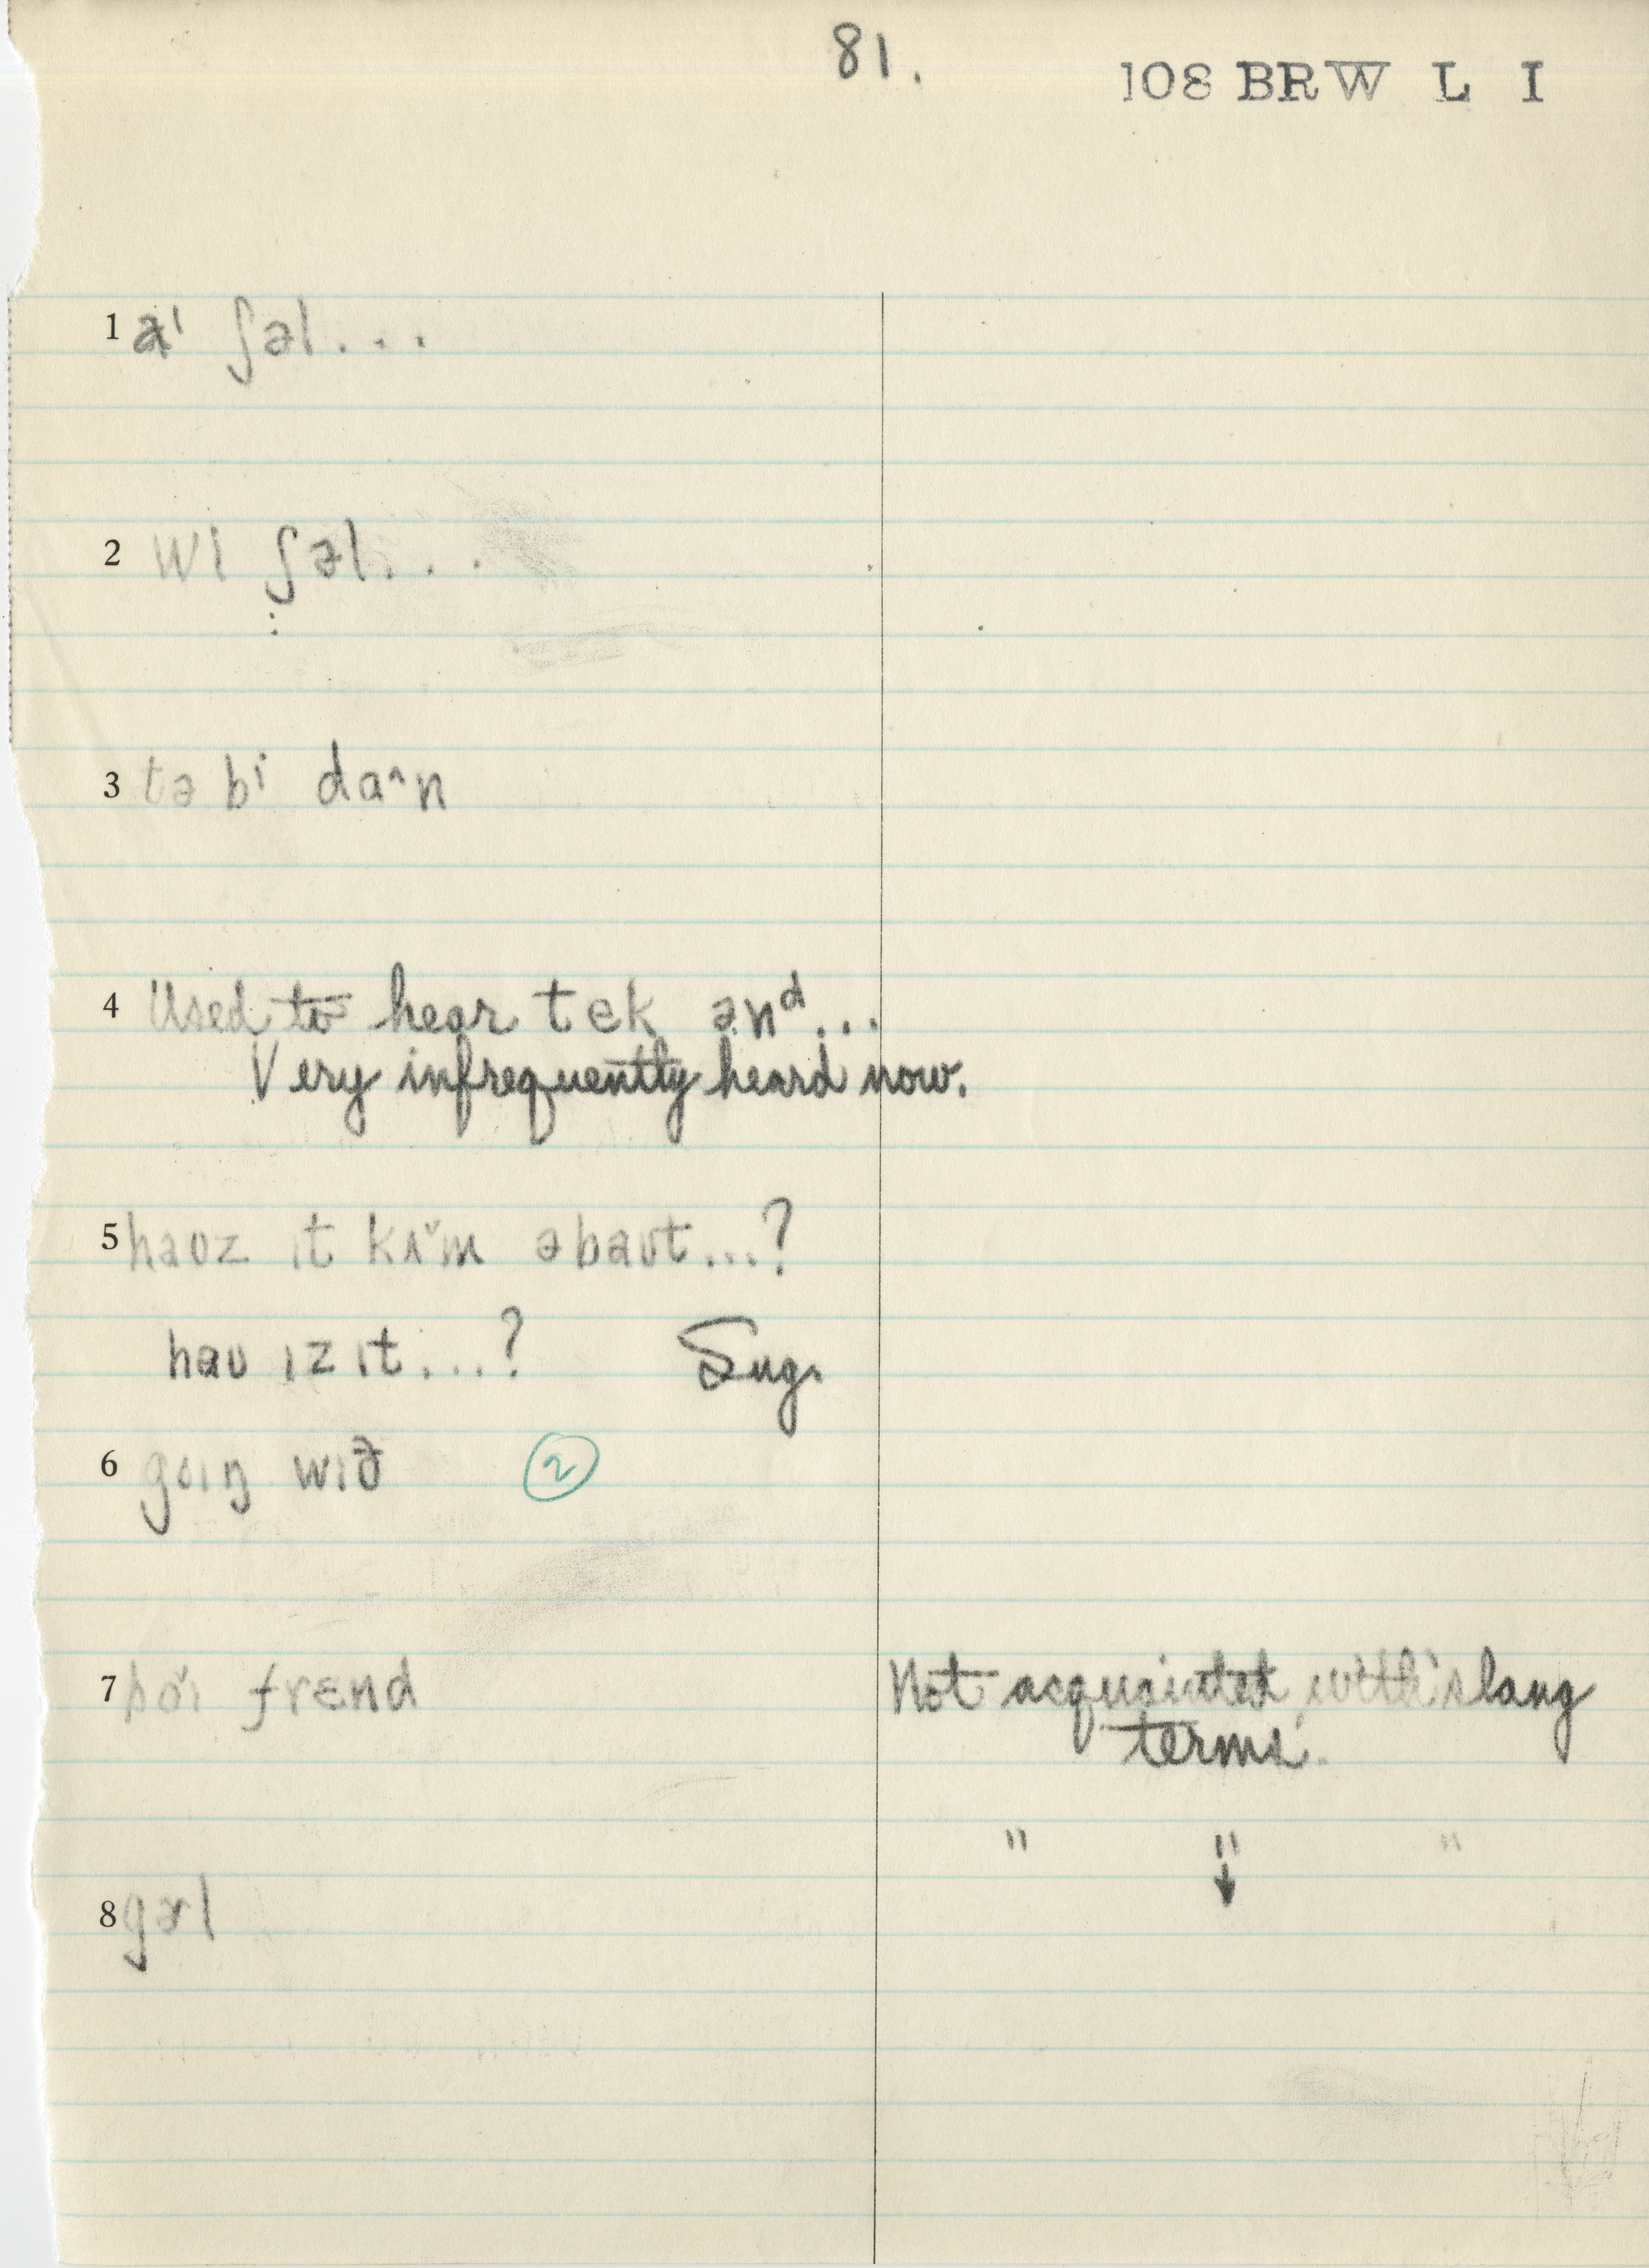 81.
108 BRW L I
1 aᶦ ʃəl...
2 wi ʃəl...
3 tə bi da^n
4 Used to hear tek ənᵈ...
Very infrequently heard now.
5 haʊz ɪt kʌ̌m əbaʊt...?
haʊ ɪz ɪt...? Sug.
6 goɪŋ wɪð ②
7 bɔ̌ɪ frɛnd Not acquainted with 'slang
terms'.
" " "
↓
8 gɚl